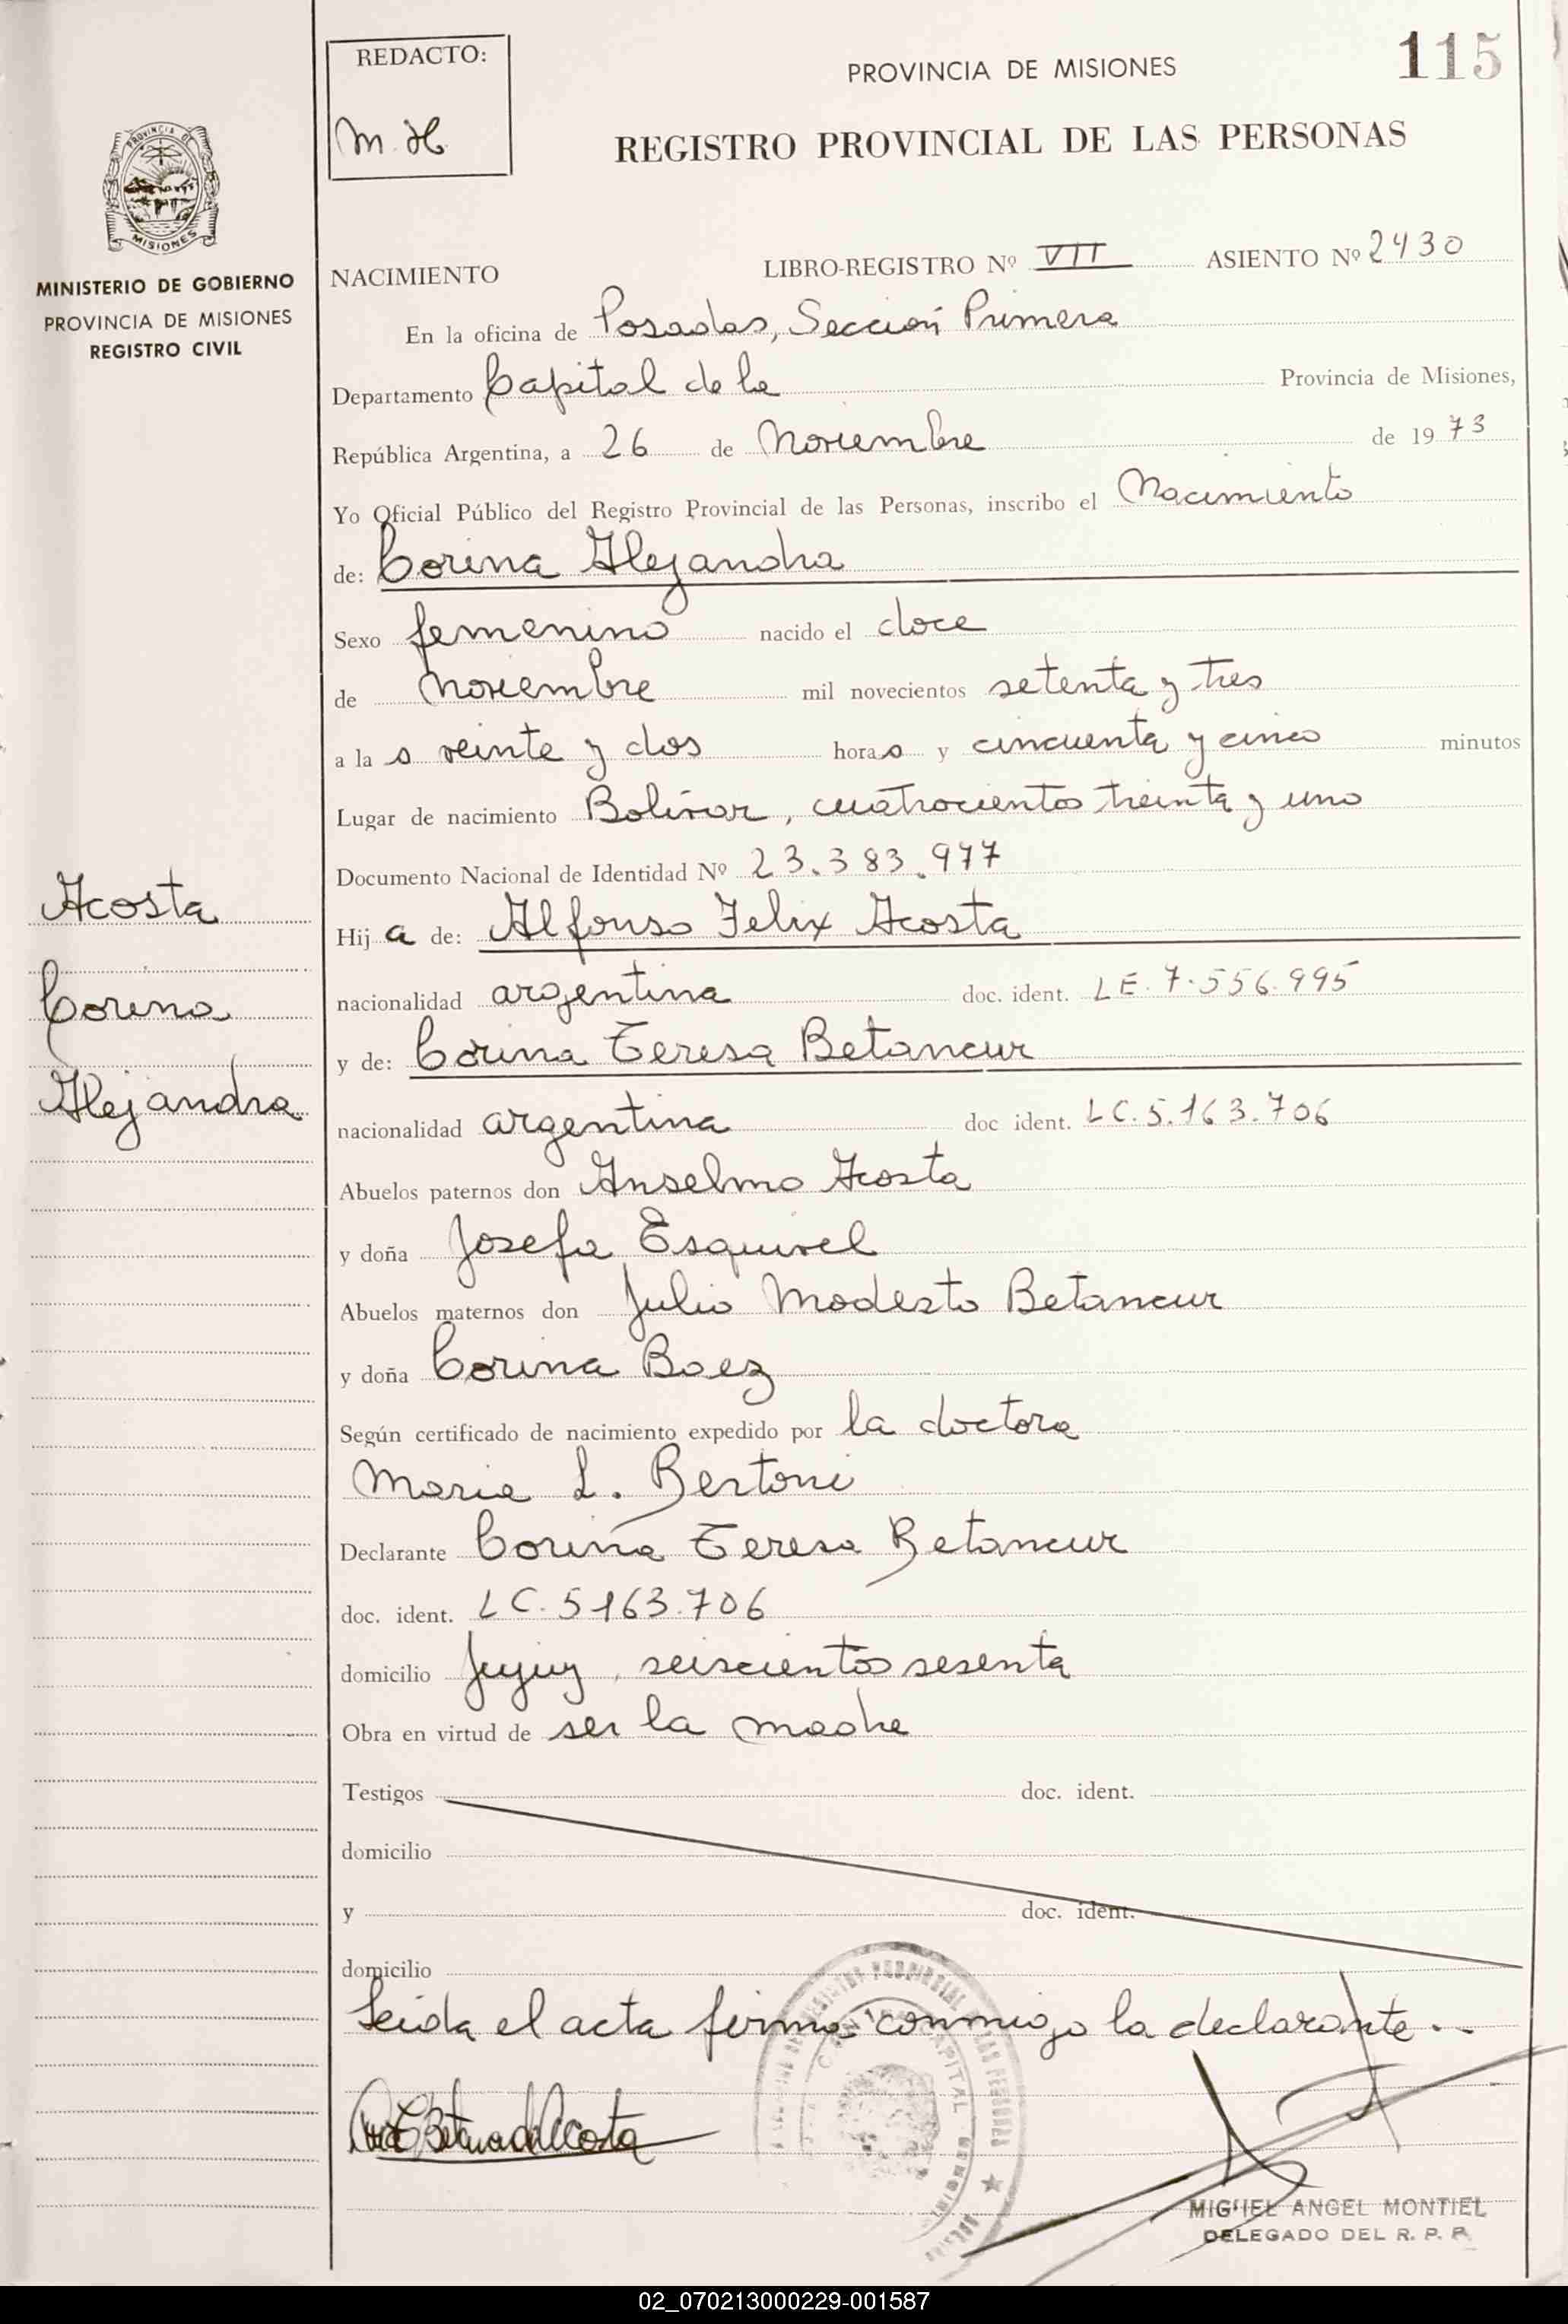 REDACTO:
M. H.
PROVINCIA DE MISIONES
115
REGISTRO PROVINCIAL DE LAS PERSONAS
PROVINCIA DE
MISIONES
MINISTERIO DE GOBIERNO
PROVINCIA DE MISIONES
REGISTRO CIVIL
NACIMIENTO LIBRO-REGISTRO Nº VII ASIENTO Nº 2430
En la oficina de Posadas, Sección Primera
Departamento Capital de la Provincia de Misiones,
República Argentina, a 26 de Noviembre de 1973
Yo Oficial Público del Registro Provincial de las Personas, inscribo el Nacimiento
de: Corina Alejandra
Sexo femenino nacido el doce
de Noviembre mil novecientos setenta y tres
a las veinte y dos horas y cincuenta y cinco minutos
Lugar de nacimiento Bolívar, cuatrocientos treinta y uno
Documento Nacional de Identidad Nº 23.383.977
Hija de: Alfonso Felix Acosta
nacionalidad argentina doc. ident. LE. 7.556.995
y de: Corina Teresa Betancur
nacionalidad argentina doc ident. LC. 5.163.706
Abuelos paternos don Anselmo Acosta
y doña Josefa Esquivel
Abuelos maternos don Julio Modesto Betancur
y doña Corina Baez
Según certificado de nacimiento expedido por la doctora
Maria L. Bertoni
Declarante Corina Teresa Betancur
doc. ident. LC. 5163.706
domicilio Jujuy, seiscientos sesenta
Obra en virtud de ser la madre
Testigos doc. ident.
domicilio
y doc. ident.
domicilio
Leida el acta firma conmigo la declarante.--
Acosta
Corina
Alejandra
MIGUEL ANGEL MONTIEL
DELEGADO DEL R. P. P.
02_070213000229-001587